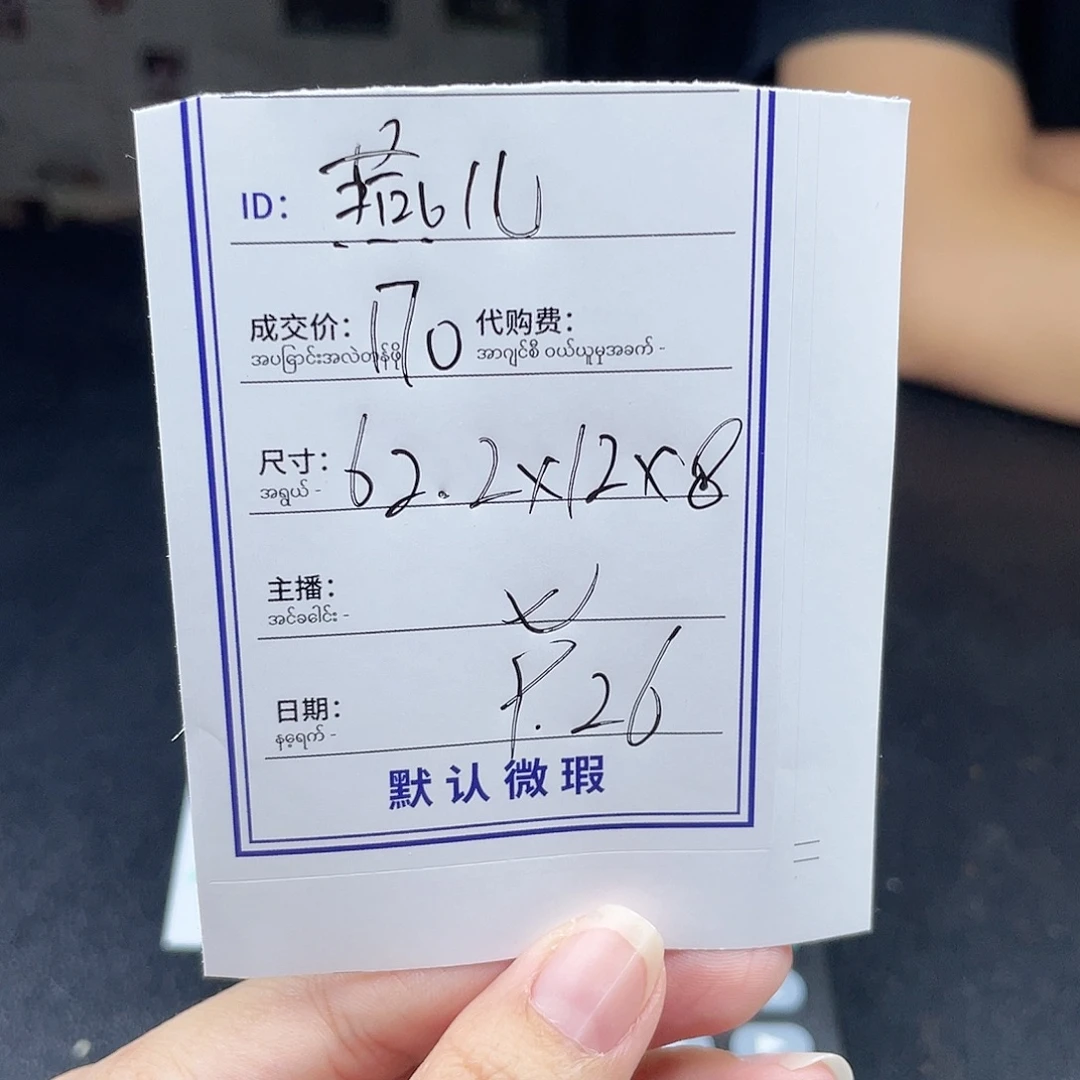 ID:
成交价: 170 代购费:
အပြောင်းအလဲတန်ဖိုး အာဂျင်စီ ဝယ်ယူမှုအခက် -
尺寸: 62.2x12x8
အရွယ် -
主播:
အင်ခေါင်း -
日期: 26
နေ့ရက် -
默认微瑕